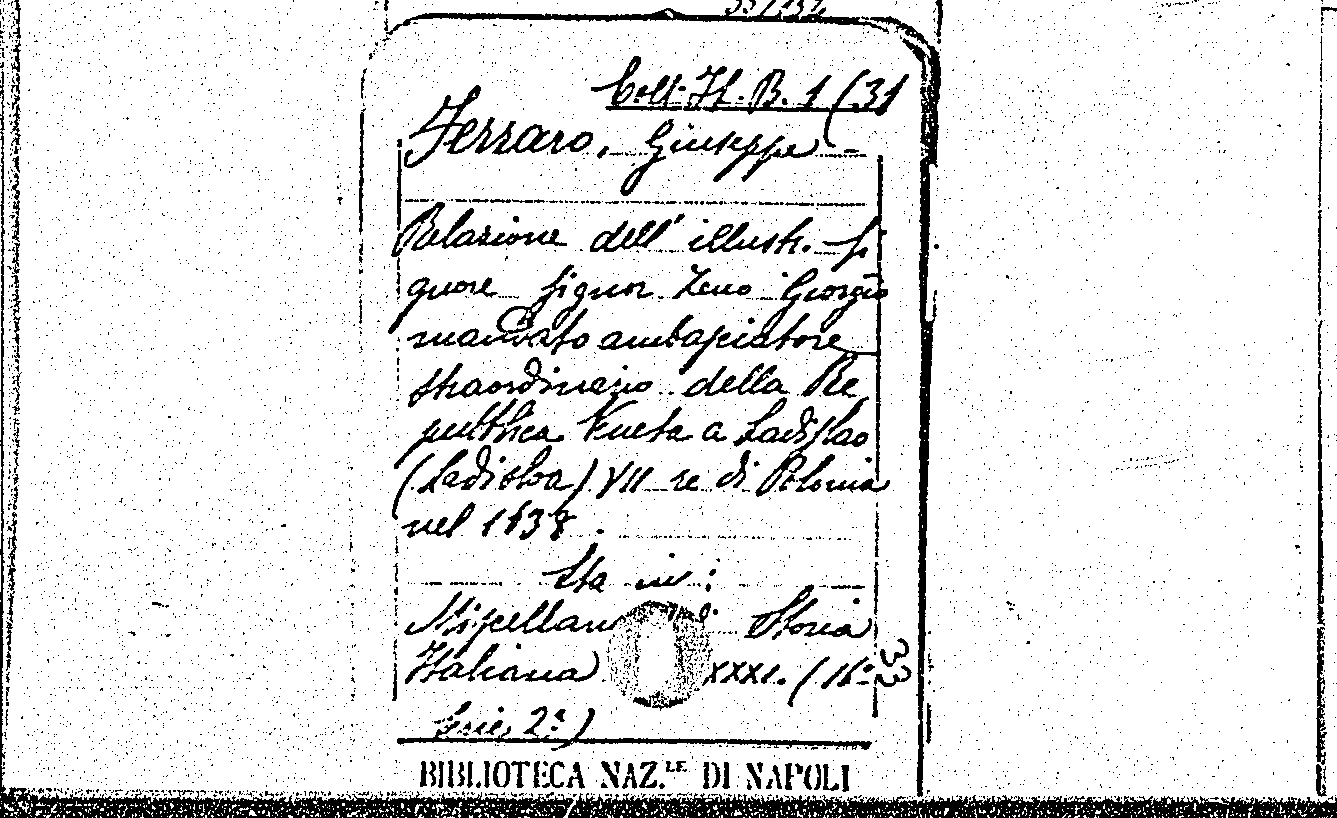 Coll. It. B. 1 (31
Ferraro, Giuseppe -
Relazione dell' illustr. si
gnore signor Zeno Giorgio
mandato ambasciatore
straordinario della Re
pubblica Veneta a Ladislao
(Ladislva) VII re di Polonia
nel 1638.
Sta in:
Miscellan di Storia
Italiana XXXI. (16ª
Serie, 2ª)
33
BIBLIOTECA NAZ.LE DI NAPOLI